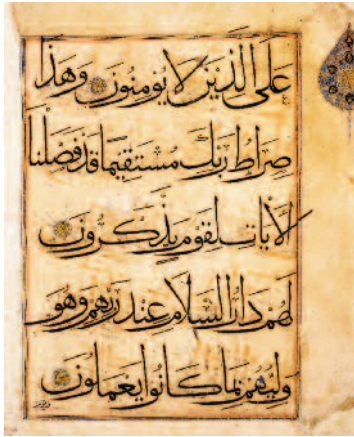 على الذين لا يومنون وهذا
صراط ربك مستقيما قد فصلنا
الآيات لقوم يذكرون
لهم دار السلام عند ربهم وهو
وليهم بما كانوا يعملون